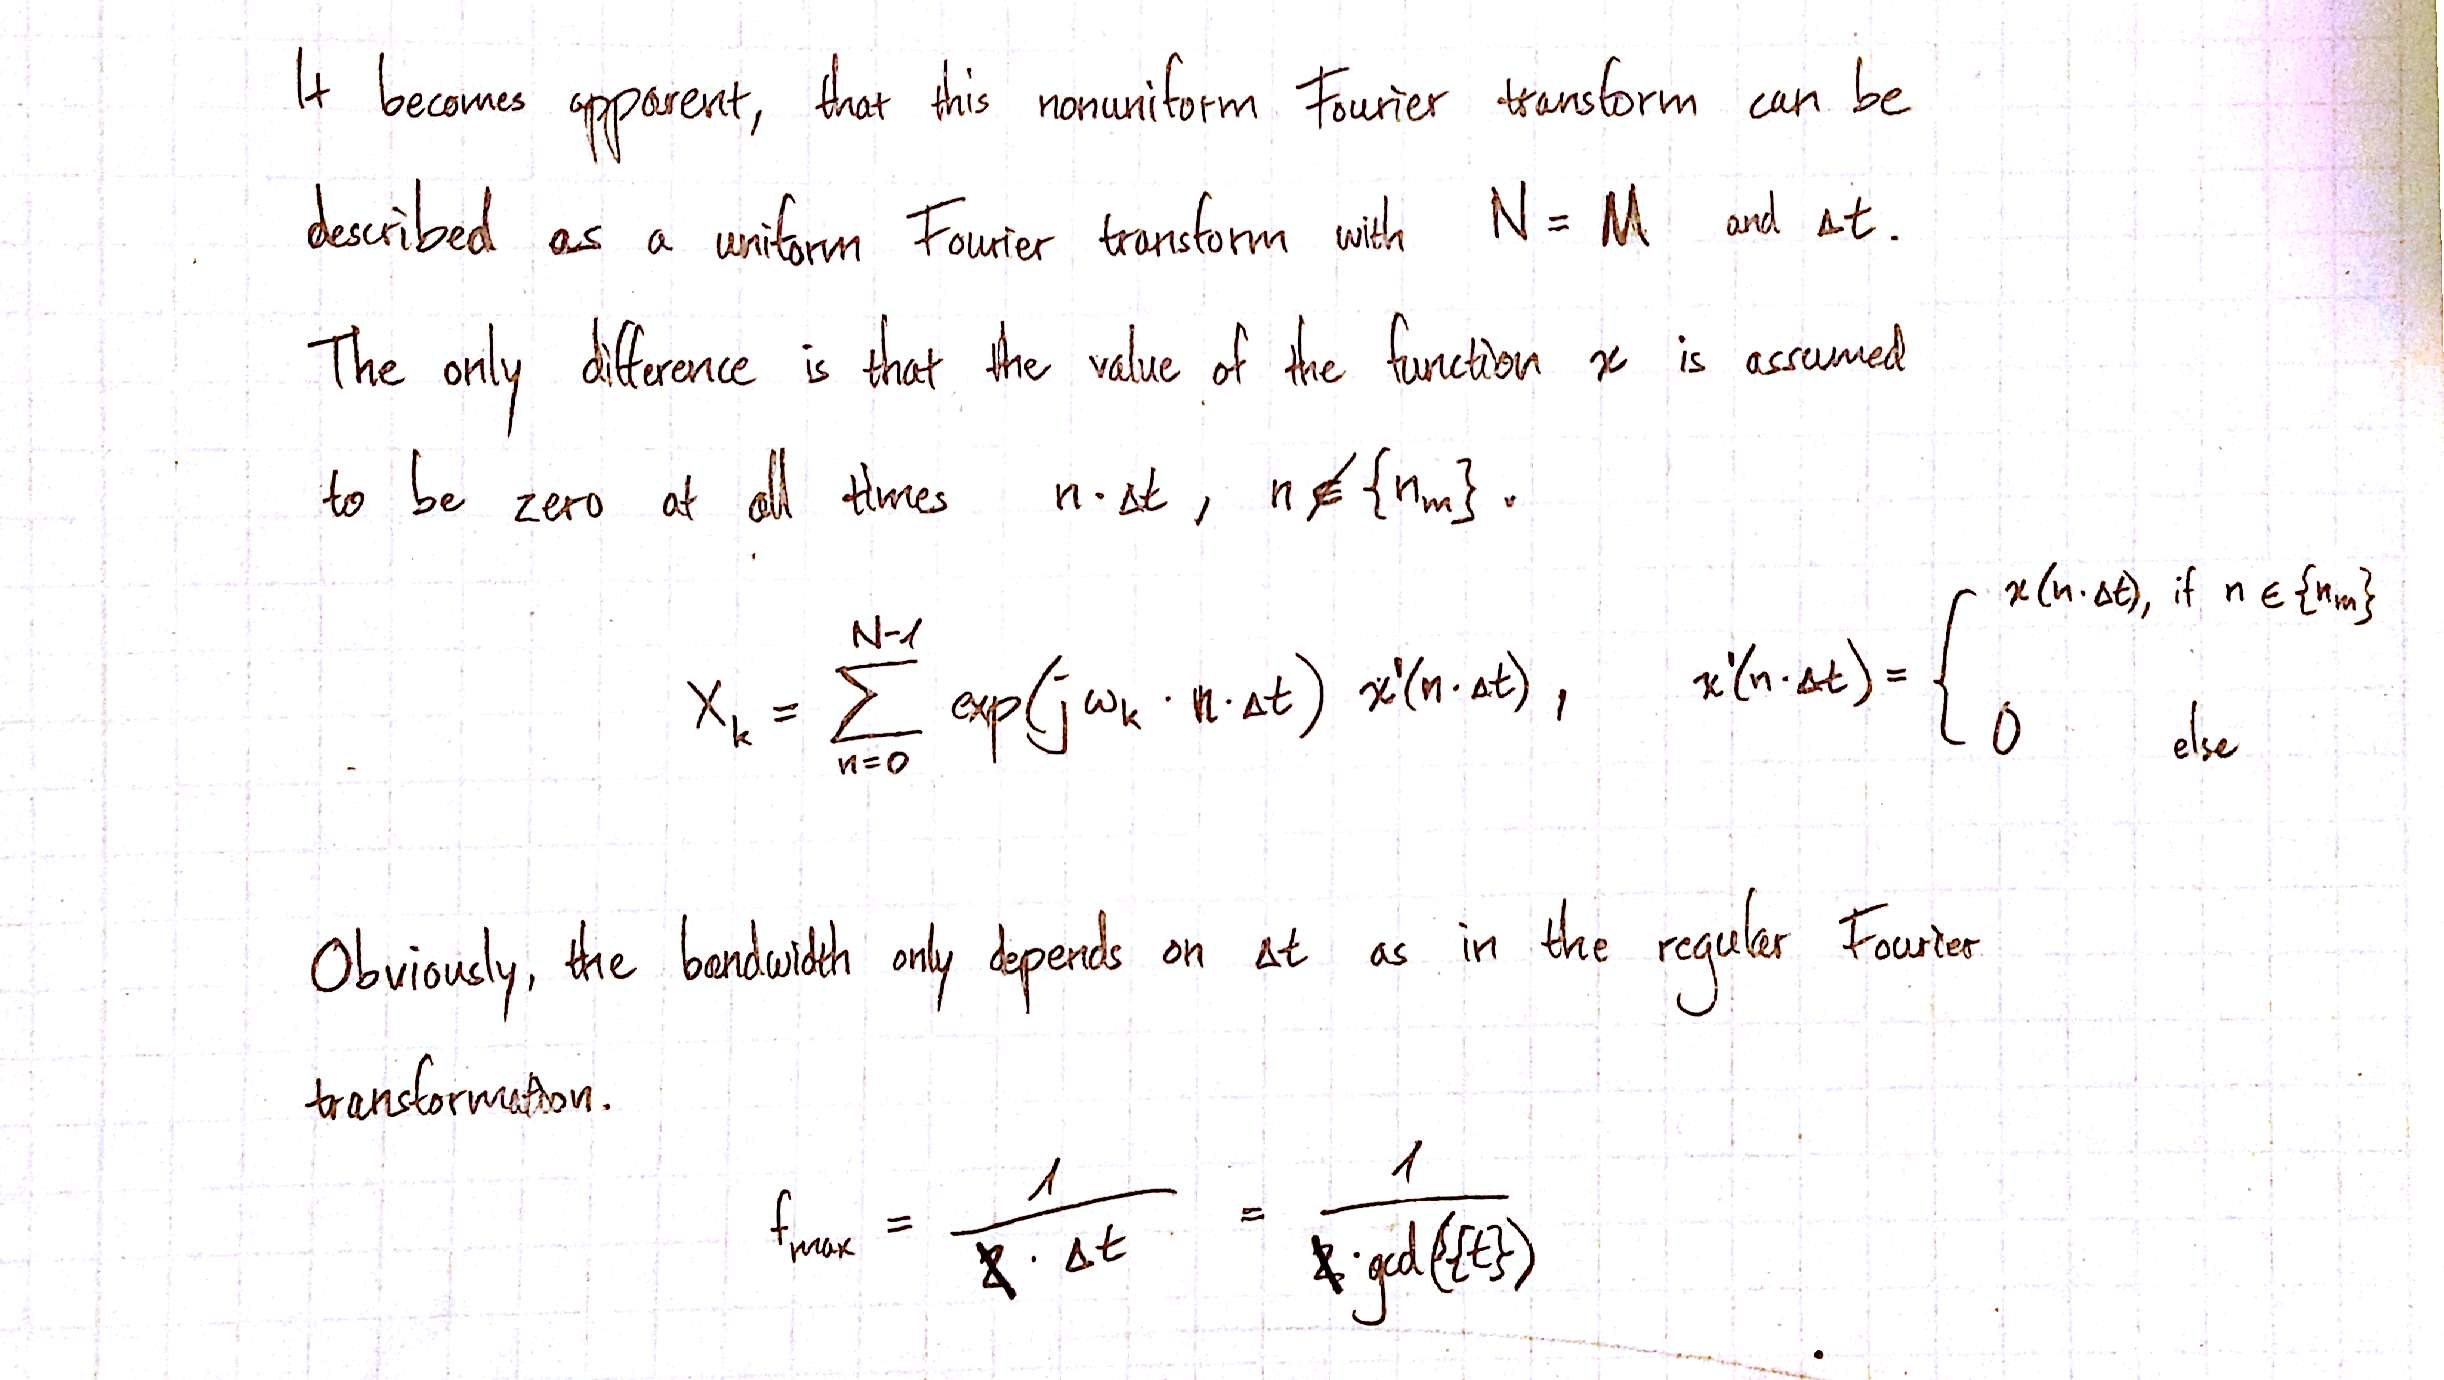 It becomes apparent, that this nonuniform Fourier transform can be
described as a uniform Fourier transform with N = M and Δt.
The only difference is that the value of the function x is assumed
to be zero at all times n·Δt, n ∉ {n_m}.
X_k = \sum_{n=0}^{N-1} exp(j ω_k · n·Δt) x'(n·Δt), x'(n·Δt) = { x(n·Δt), if n ∈ {n_m}
0 else
Obviously, the bandwidth only depends on Δt as in the regular Fourier
transformation.
f_max = 1 / (· Δt) = 1 / (· gcd({t}))